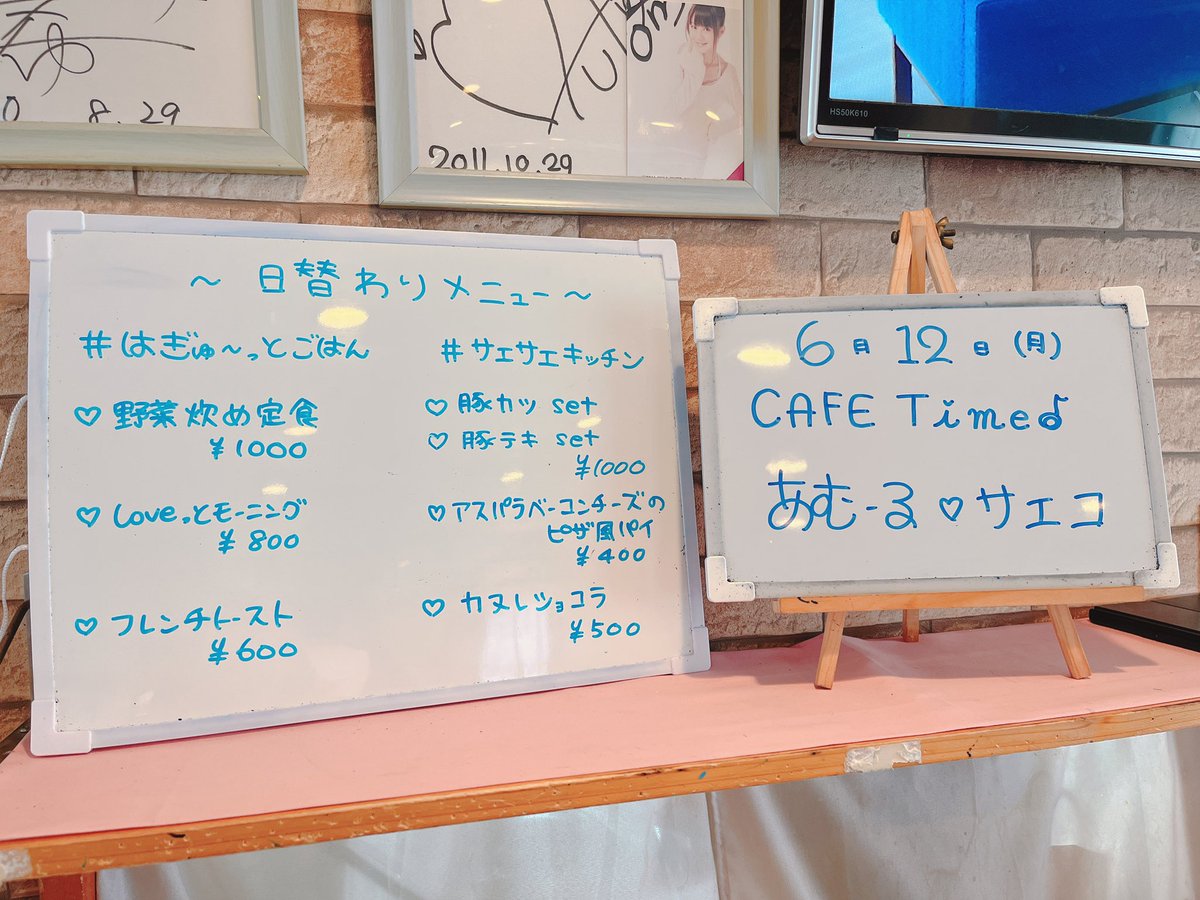 8.29
2011.10.29
HS50K610
～日替わりメニュー～
#はぎゅ～っとごはん
♡野菜炒め定食
¥1000
♡Loveっとモーニング
¥800
♡フレンチトースト
¥600
#サエサエキッチン
♡豚カツ set
♡豚テキ set
¥1000
♡アスパラベーコンチーズの
ピザ風パイ
¥400
♡カヌレショコラ
¥500
6月12日(月)
CAFE Time♪
あむーる♡サエコ